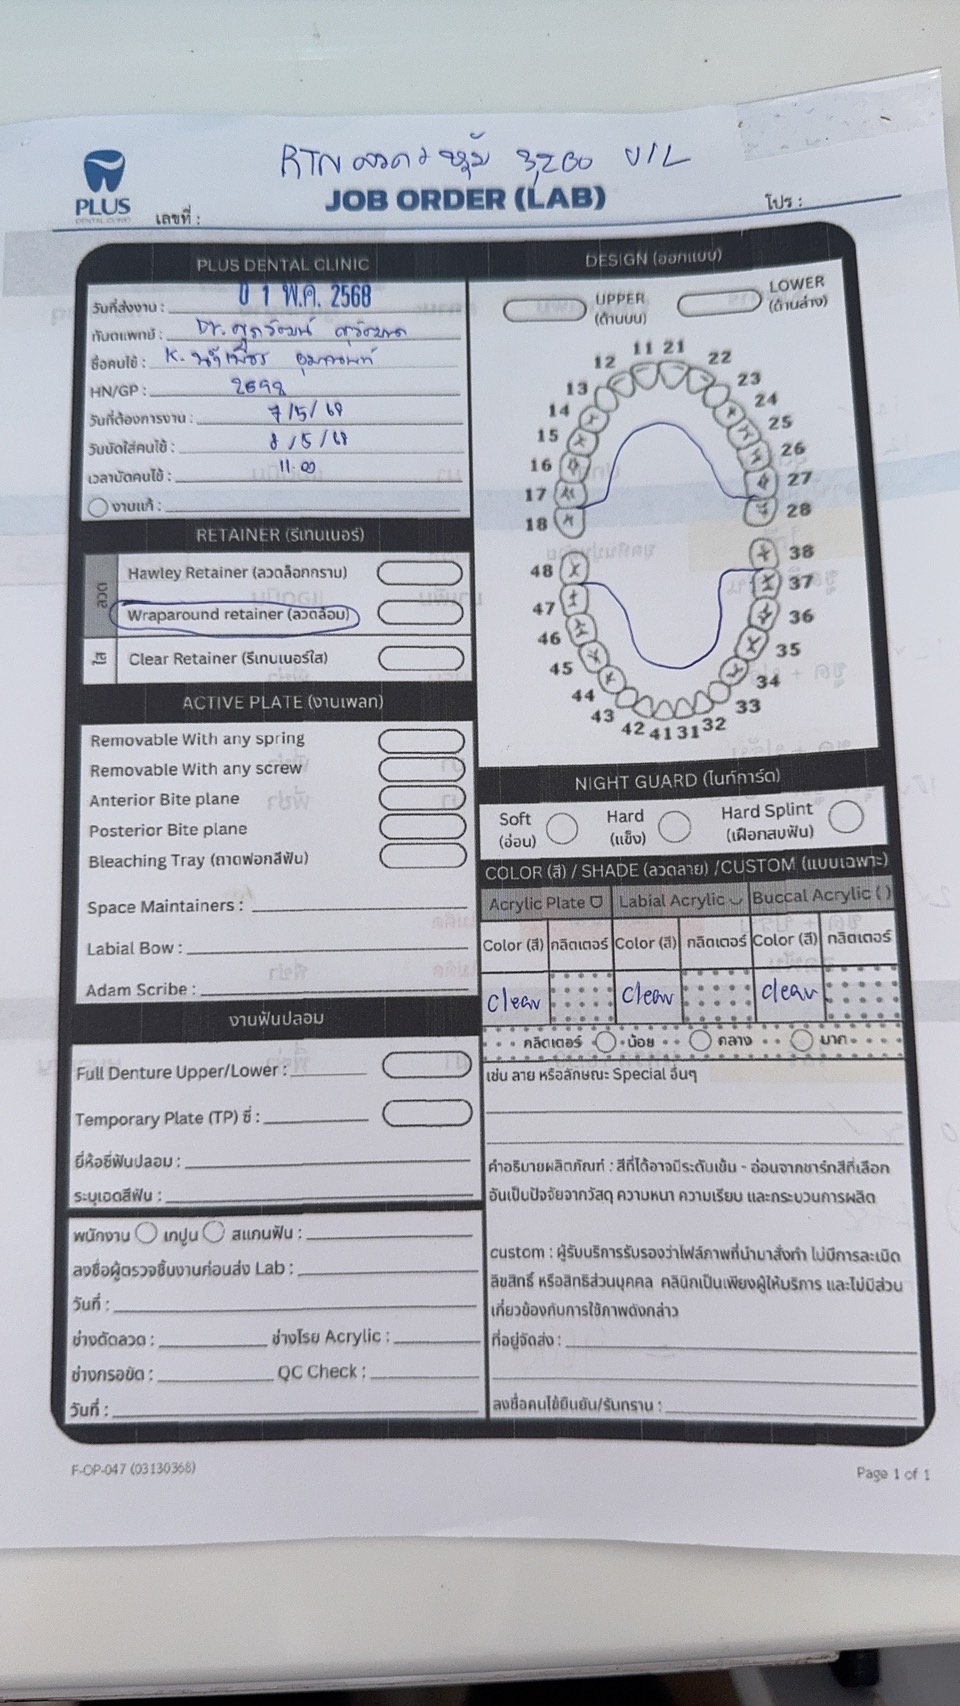 RTN ลวด 3,200 U/L
PLUS
DENTAL CLINIC
เลขที่ :
JOB ORDER (LAB)
โปร :
PLUS DENTAL CLINIC
วันที่ส่งงาน : 0 1 พ.ค. 2568
ทันตแพทย์ : Dr.
ชื่อคนไข้ : K.
HN/GP : 2698
วันที่ต้องการงาน : 7/5/68
วันนัดใส่คนไข้ : 8/5/68
เวลานัดคนไข้ : 11.00
งานแก้ :
RETAINER (รีเทนเนอร์)
ลวด
Hawley Retainer (ลวดล็อกกราม)
Wraparound retainer (ลวดล้อม)
ใส
Clear Retainer (รีเทนเนอร์ใส)
ACTIVE PLATE (งานเพลท)
Removable With any spring
Removable With any screw
Anterior Bite plane
Posterior Bite plane
Bleaching Tray (ถาดฟอกสีฟัน)
Space Maintainers :
Labial Bow :
Adam Scribe :
งานฟันปลอม
Full Denture Upper/Lower :
Temporary Plate (TP) ซี่ :
ยี่ห้อซี่ฟันปลอม :
ระบุเฉดสีฟัน :
พนักงาน เทปูน สแกนฟัน :
ลงชื่อผู้ตรวจชิ้นงานก่อนส่ง Lab :
วันที่ :
ช่างดัดลวด : ช่างโรย Acrylic :
ช่างกรอขัด : QC Check :
วันที่ :
DESIGN (ออกแบบ)
UPPER
(ด้านบน)
LOWER
(ด้านล่าง)
11 21
12 22
13 23
14 24
15 25
16 26
17 27
18 28
48 38
47 37
46 36
45 35
44 34
43 33
42 41 31 32
NIGHT GUARD (ไนท์การ์ด)
Soft
(อ่อน)
Hard
(แข็ง)
Hard Splint
(เฝือกสบฟัน)
COLOR (สี) / SHADE (ลวดลาย) /CUSTOM (แบบเฉพาะ)
Acrylic Plate Labial Acrylic Buccal Acrylic ( )
Color (สี) กลิตเตอร์ Color (สี) กลิตเตอร์ Color (สี) กลิตเตอร์
clear clear clear
กลิตเตอร์ น้อย กลาง มาก
เช่น ลาย หรือลักษณะ Special อื่นๆ
คำอธิบายผลิตภัณฑ์ : สีที่ได้อาจมีระดับเข้ม - อ่อนจากชาร์ทสีที่เลือก
อันเป็นปัจจัยจากวัสดุ ความหนา ความเรียบ และกระบวนการผลิต
custom : ผู้รับบริการรับรองว่าไฟล์ภาพที่นำมาสั่งทำ ไม่มีการละเมิด
ลิขสิทธิ์ หรือสิทธิส่วนบุคคล คลินิกเป็นเพียงผู้ให้บริการ และไม่มีส่วน
เกี่ยวข้องกับการใช้ภาพดังกล่าว
ที่อยู่จัดส่ง :
ลงชื่อคนไข้ยืนยัน/รับทราบ :
F-OP-047 (03130368)
Page 1 of 1